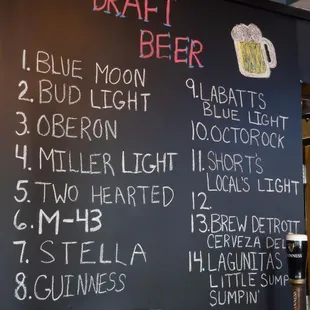 DRAFT
BEER
1. BLUE MOON
2. BUD LIGHT
3. OBERON
4. MILLER LIGHT
5. TWO HEARTED
6. M-43
7. STELLA
8. GUINNESS
9. LABATTS
BLUE LIGHT
10. OCTOROCK
11. SHORT'S
LOCAL'S LIGHT
12.
13. BREW DETROIT
CERVEZA DEL
14. LAGUNITAS
LITTLE SUMP
SUMPIN'
GUINNESS